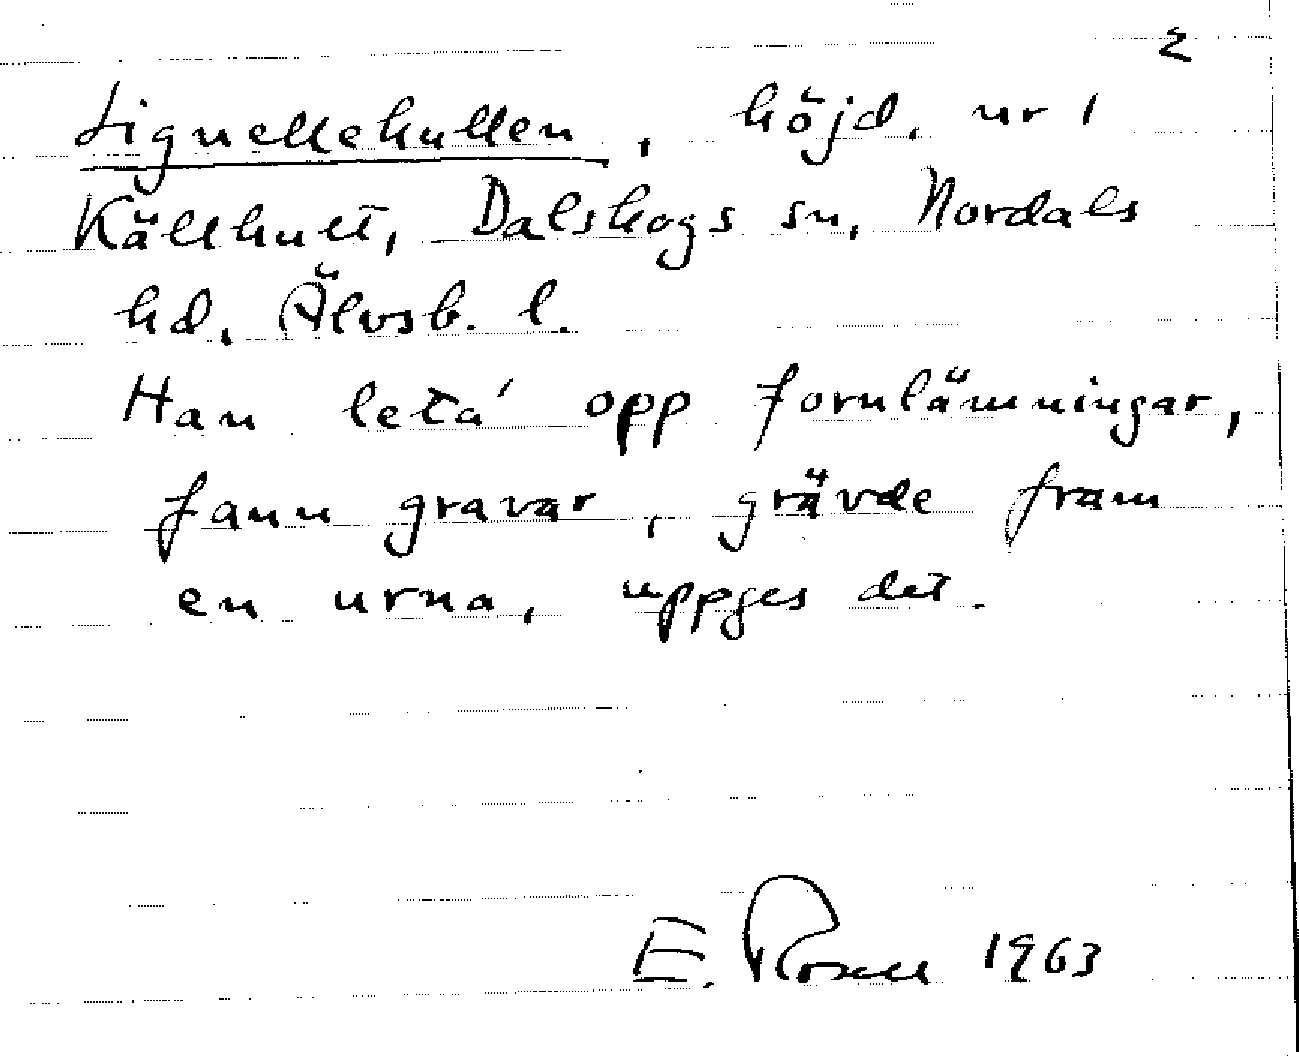 2
Lignellekullen, höjd, nr 1
Källhult, Dalskogs sn, Nordals
hd, Älvsb. l.
Han leta' opp fornlämningar,
fann gravar, grävde fram
en urna, uppges det.
E. Rosell 1963